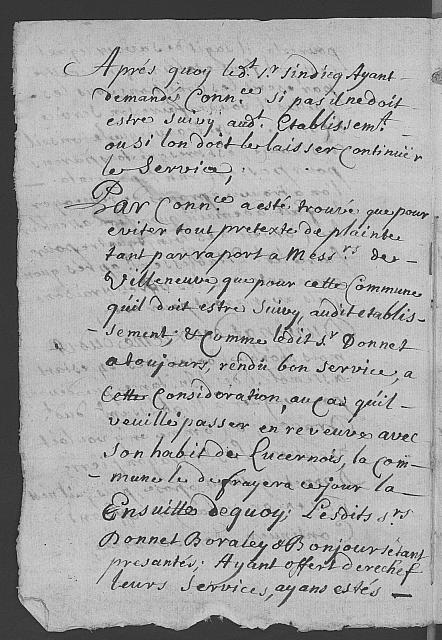 Aprés quoy led.t Sr. sindicq Ayant
demandé Conn.ce si pas il ne doit
estre Suivy aud.t Etablissem.t
ou si lon doit le laisser continuer
le Service,
Par Conn.ce a esté trouvé que pour
éviter tout pretexte de plainte
tant par raport a Mess.rs de
Villeneuve, que pour cette Commune
quil doit estre Suivy, audit etablis-
sement & Comme ledit Sr. Donnet
a toujours, rendu bon service, a
cette Consideration, au cas quil
veuille passer en reveuë avec
Son habit de Lucernois, la com-
mune le defrayera ce jour la
Ensuitte dequoy, Lesdits Srs
Donnet Boraley & Bonjour s'etant
presantés; Ayant offert derechef
leurs Services, ayans estés